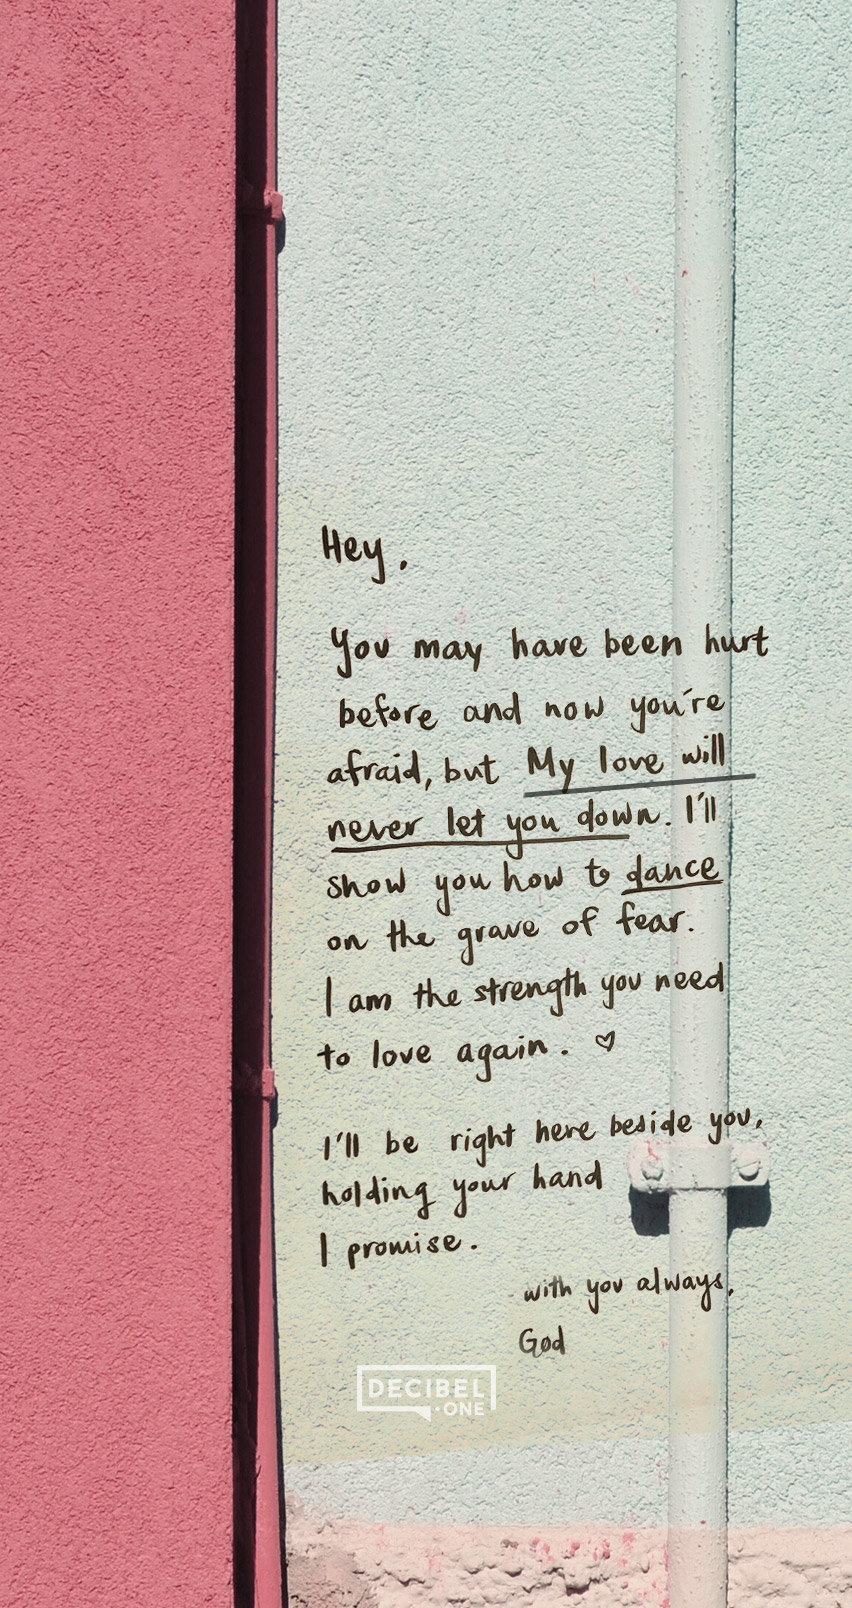 Hey,
You may have been hurt
before and now you're
afraid, but My love will
never let you down. I'll
show you how to dance
on the grave of fear.
I am the strength you need
to love again. ♡
I'll be right here beside you,
holding your hand
I promise.
with you always,
God
DECIBEL
·ONE